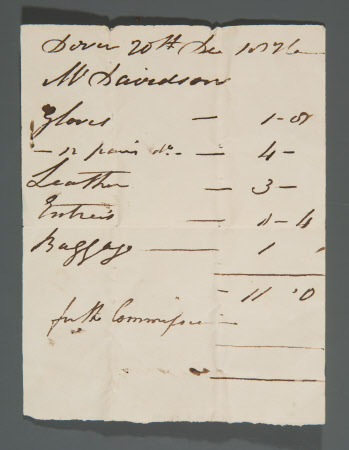 Dover 20th Dec 1826
Mr Davidson
Gloves — 1 - 8
- 12 pair do. — 4 -
Leather — 3 -
Entries — 8 - 4
Baggage — 1
11 0
Commission